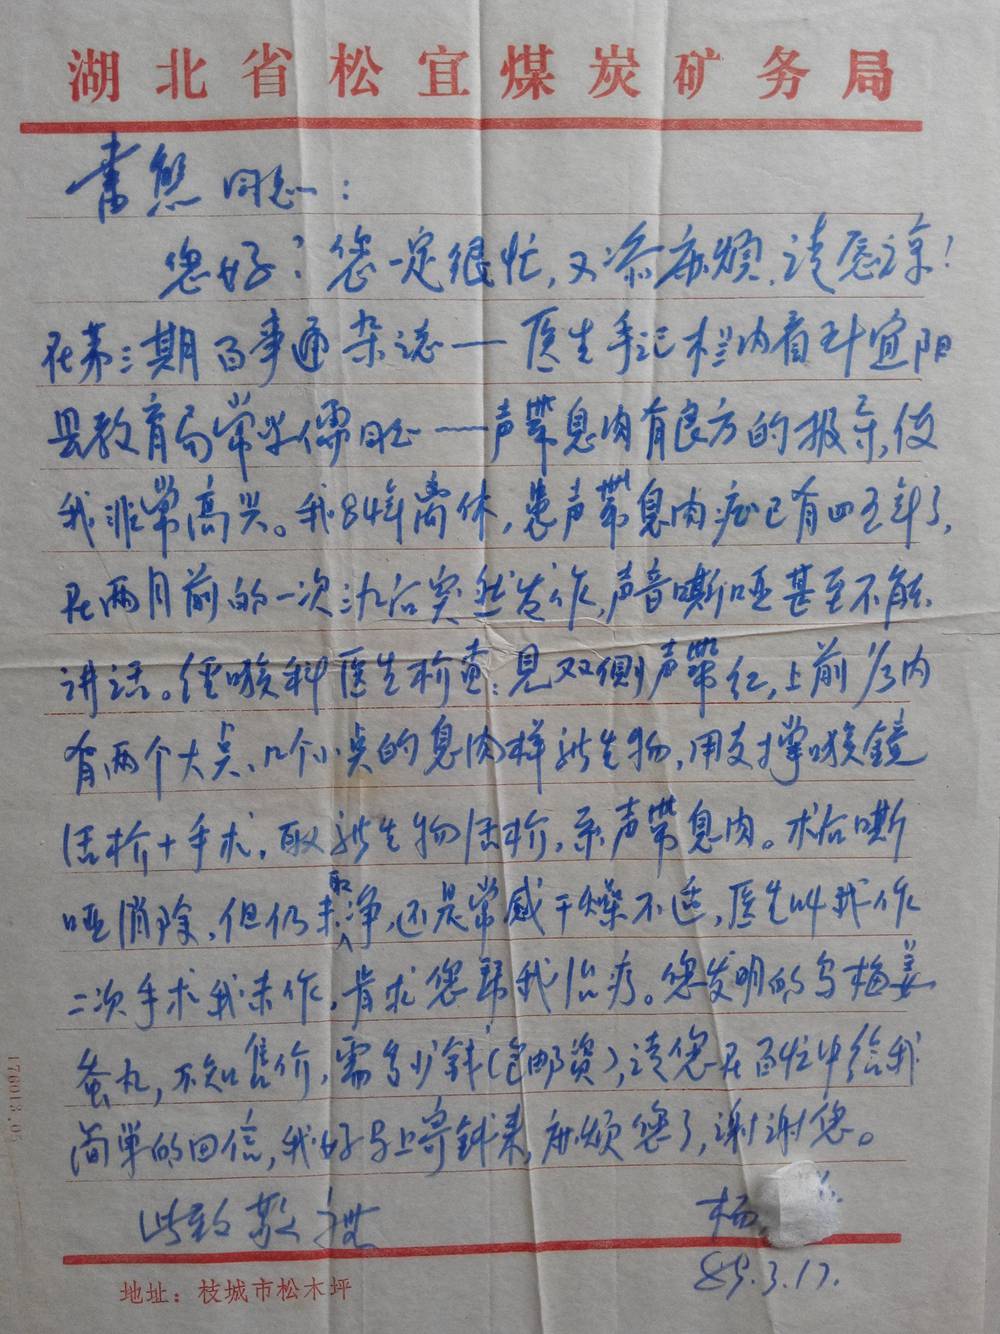 湖北省松宜煤炭矿务局
同志：
您好？您一定很忙，又添麻烦，请原谅！
在第三期百事通杂志——医生手记栏内看到宜阳
县教育局常学儒同志——声带息肉有良方的报导，使
我非常高兴。我84年离休，患声带息肉症已有四五年了，
在两月前的一次突然发作，声音嘶哑甚至不能
讲话。经喉科医生检查：见双侧声带红，上前1/3内
有两个大点、几个小点的息肉样新生物，用支撑喉镜
活检+手术，取新生物活检，系声带息肉。术后嘶
哑消除，但仍未取净，还是常感干燥不适，医生叫我作
二次手术我未作，肯求您帮我治疗。您发明的乌梅姜
蚕丸，不知售价，需多少钱（包邮资），请您在百忙中给我
简单的回信，我好马上寄钱来，麻烦您了，谢谢您。
此致敬礼
杨
89.3.17.
地址：枝城市松木坪
176013.05